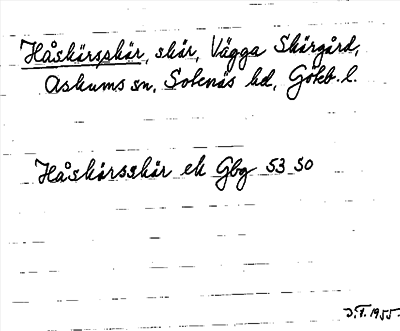 Håskärsskär, skär, Vägga Skärgård,
Askums sn, Sotenäs hd, Göteb. l.
Håskärsskär ek Gbg 53 50
J.F. 1955